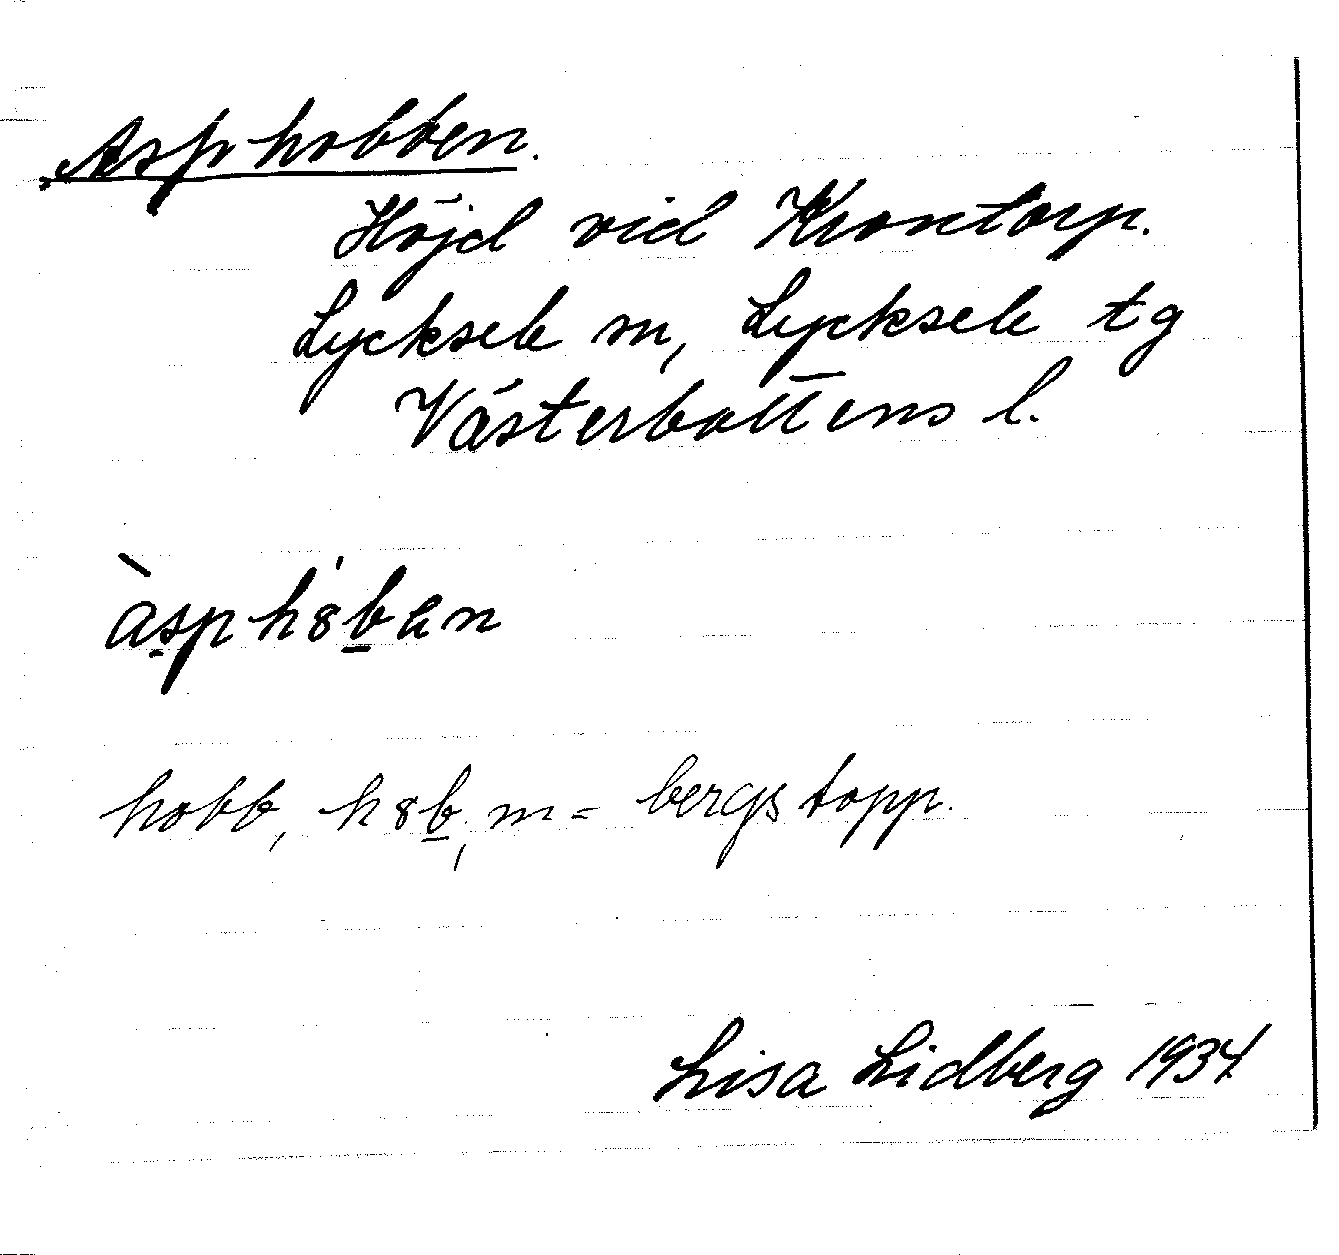 Asphobben.
Höjd vid Krontorp.
Lycksele m, Lycksele tg
Västerbottens l.
àsph8ban
hobb, h8b, m = bergstopp.
Lisa Lidberg 1934